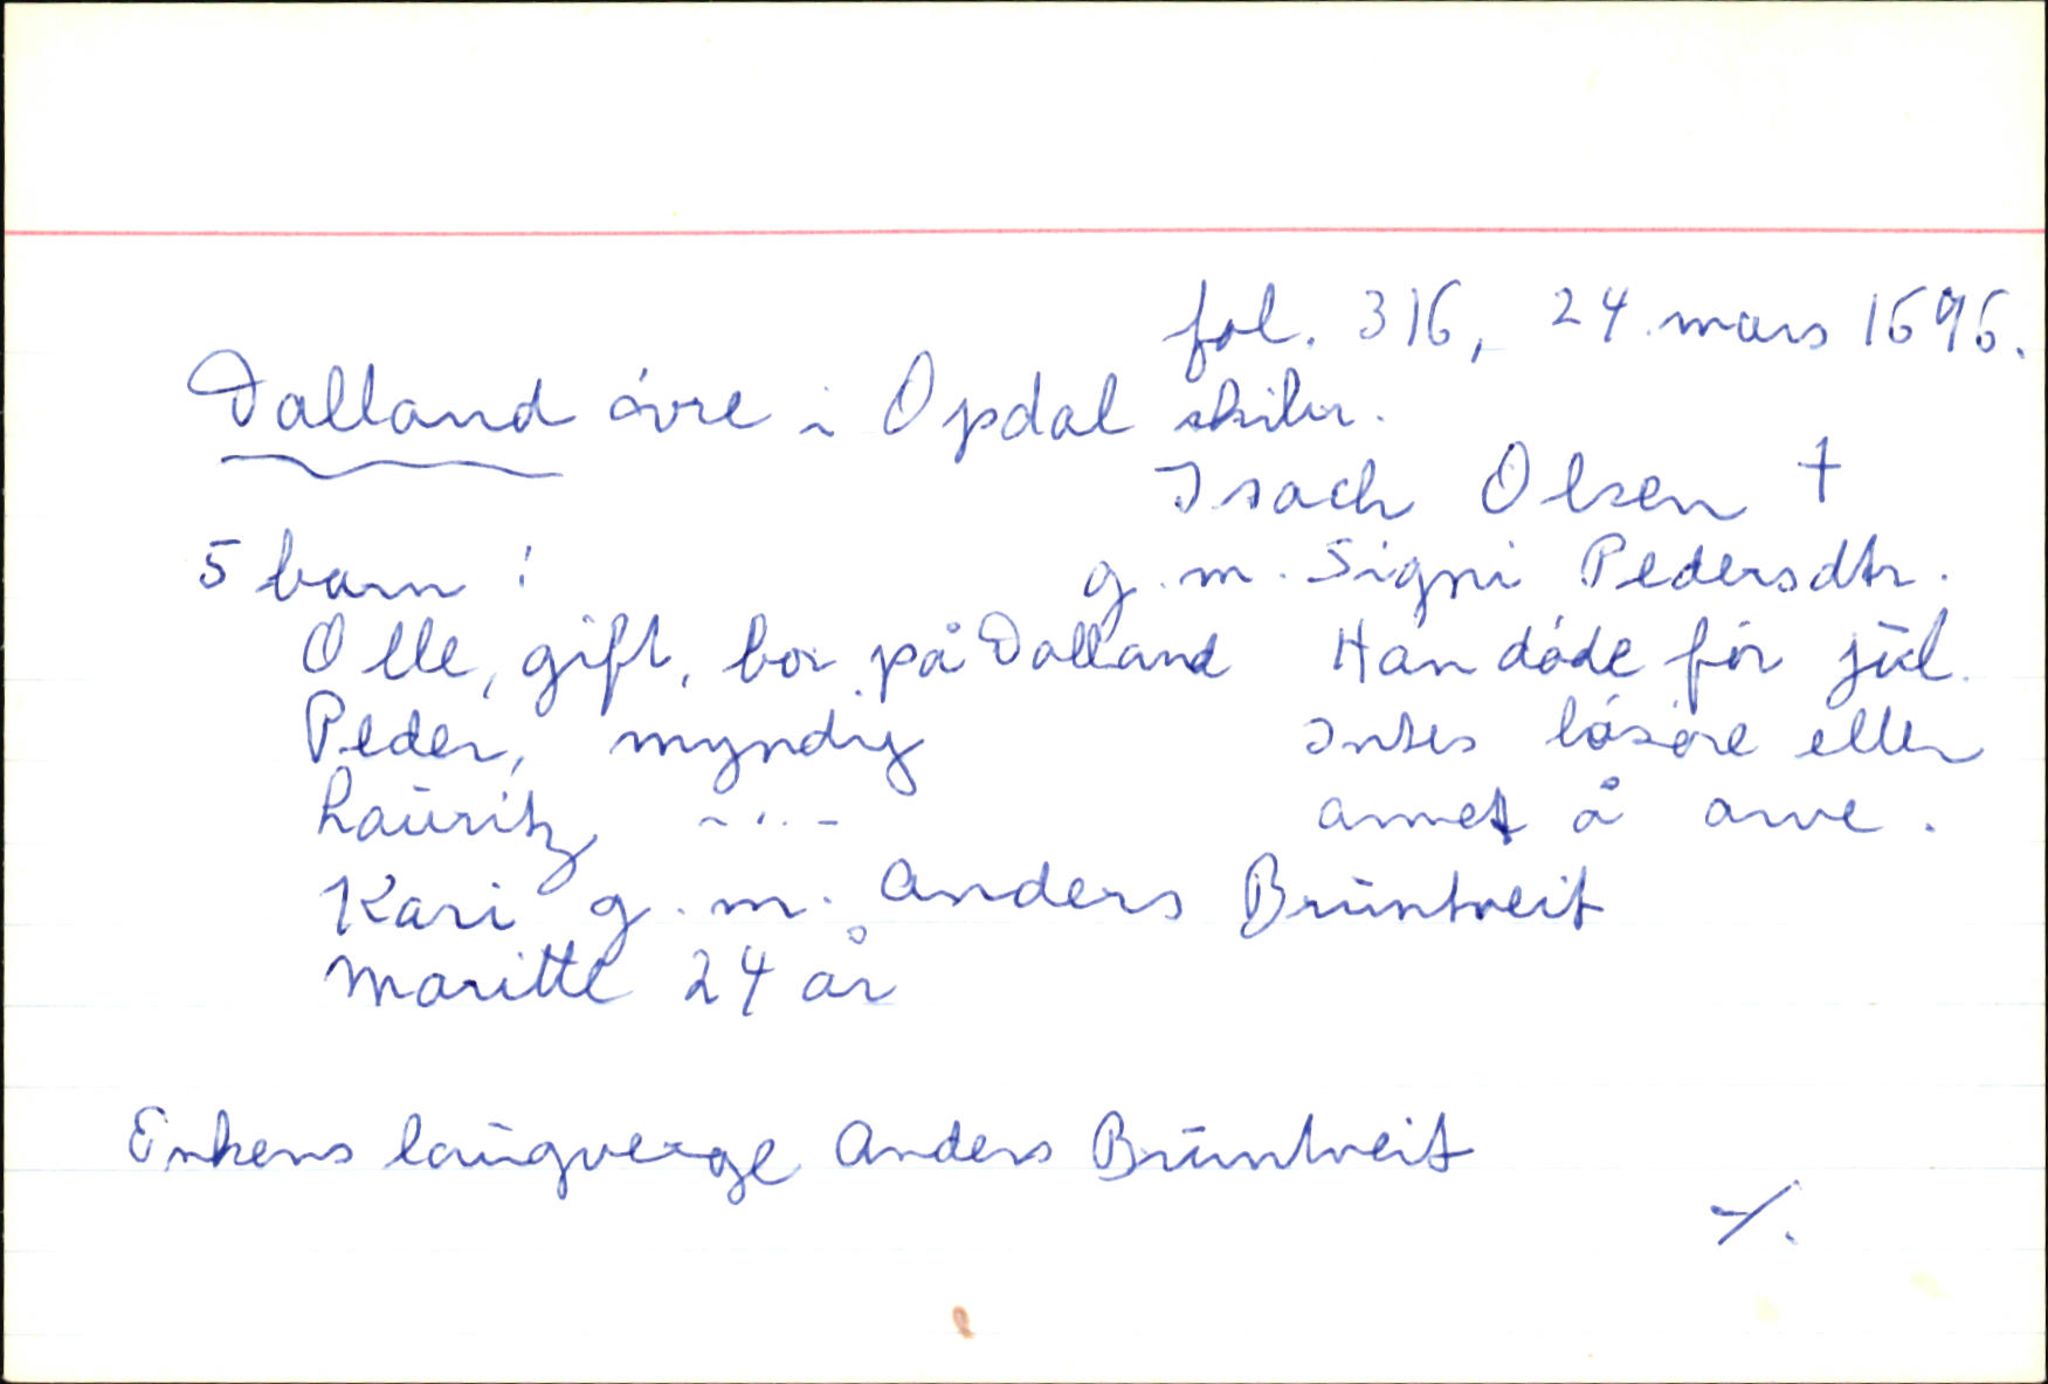 fol. 316, 24 mars 1696.
Dalland övre i Opdal skiln.
Isach Olsen †
5 barn : g.m. Signi Pedersdtr.
Olle, gift, bor på Dalland Han döde för jul.
Peder, myndig Intes lösöre eller
Lauritz -"- annet å arve.
Kari g.m. Anders Bruntveit
Maritte 24 år
Enkens laugverge Anders Bruntveit
-/.